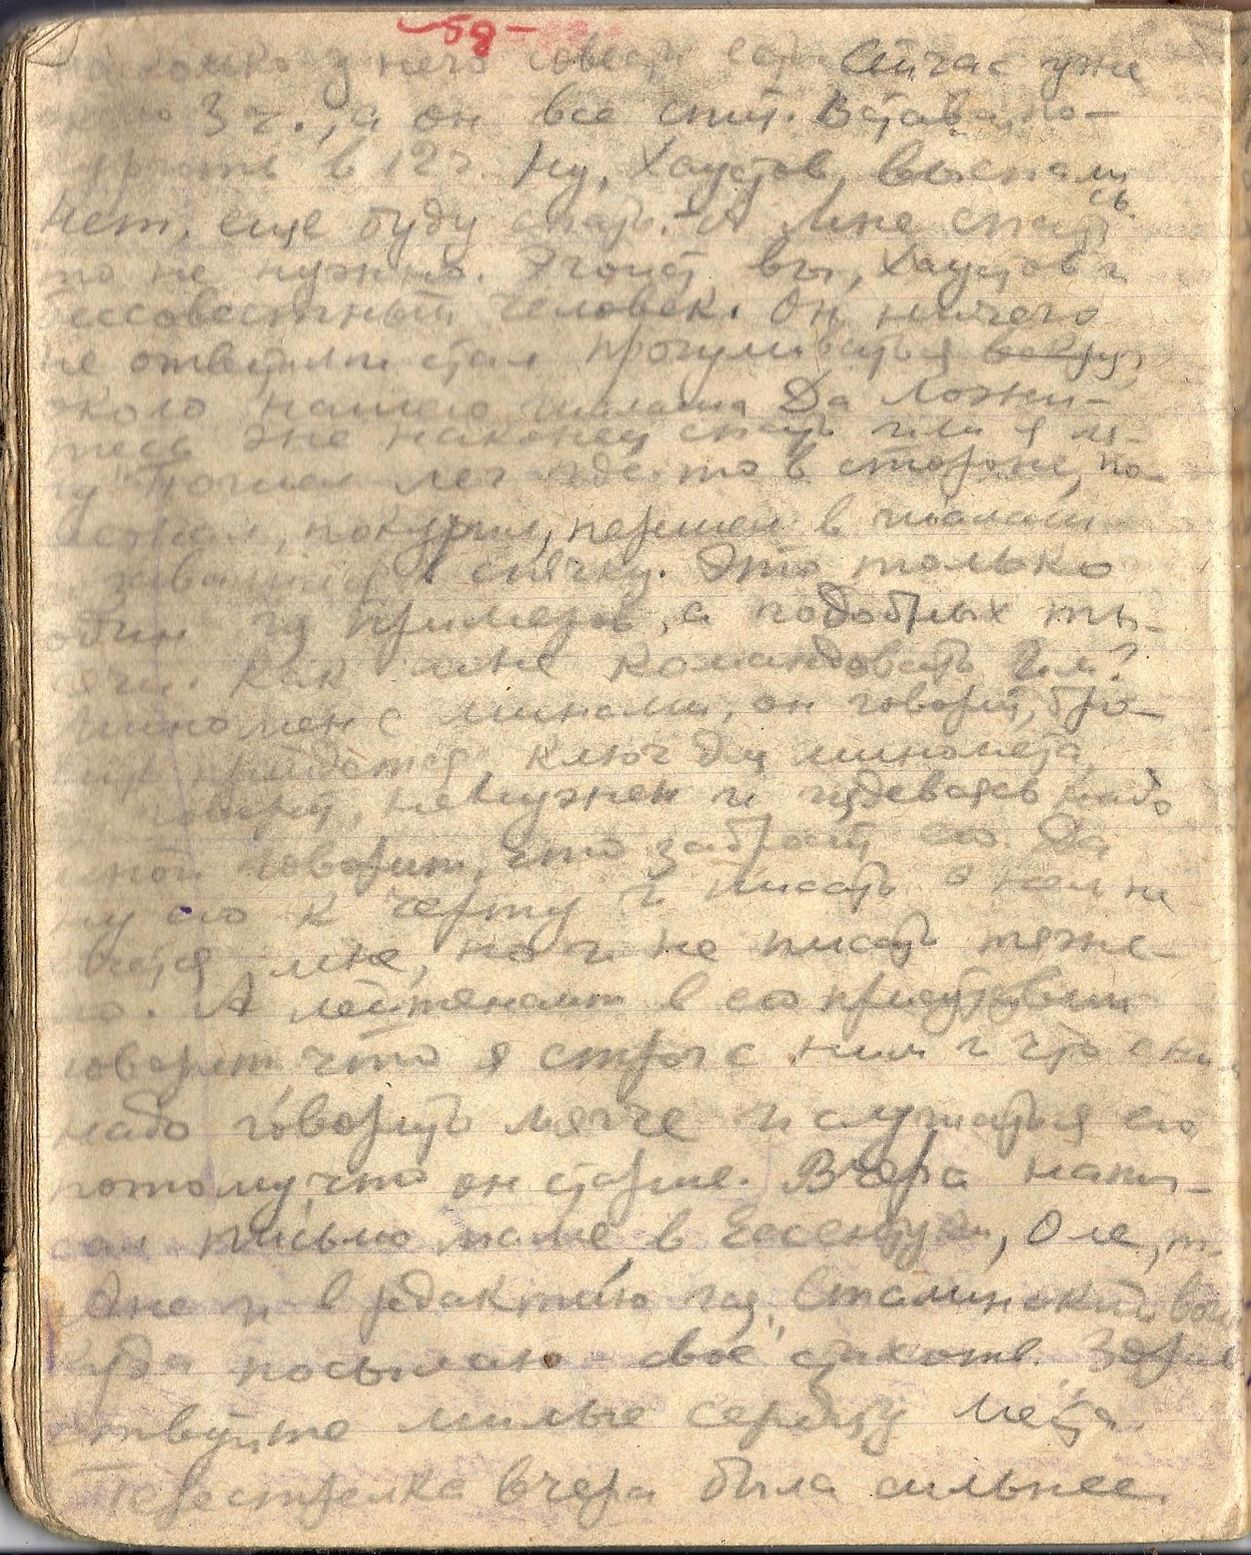 -59-
у него совести есть Сейчас уже
3 ч., а он все спит. Вставал по-
в 12 ч. Ну, Хаустов, выспались
Нет, еще буду спать. - А мне спать
то не нужно. Эгоист вы, Хаустов и
бессовестный человек. Он ничего
не ответил и стал прогуливаться вокруг
около нашего шалаша Да ложи-
тесь же наконец спать или я ля-
гу Пошел лег где-то в стороне, по-
лежал, покурил, пришел в шалаш
в спячку. Это только
один из примеров, а подобных ты-
сячи. Как мне командовать им?
с минами, он говорит, бро-
сить придется, ключ для миномета,
говорит, не нужен и издеваясь надо
мной говорит, что забросит его. Да
ну его к черту и писать о нем не
хочется мне, но и не писать тяже-
ло. А лейтенант в его присутствии
говорит что я строг с ним и что с ним
надо говорить мягче и слушаться его
потому, что он старше. Вчера напи-
сал письмо маме, в Ессентуки, Оле, т.
Ане и в редакцию газ. "Сталинский воин"
куда посылаю свое стихотв. "Здрав-
ствуйте милые сердцу места".
Перестрелка вчера была сильнее